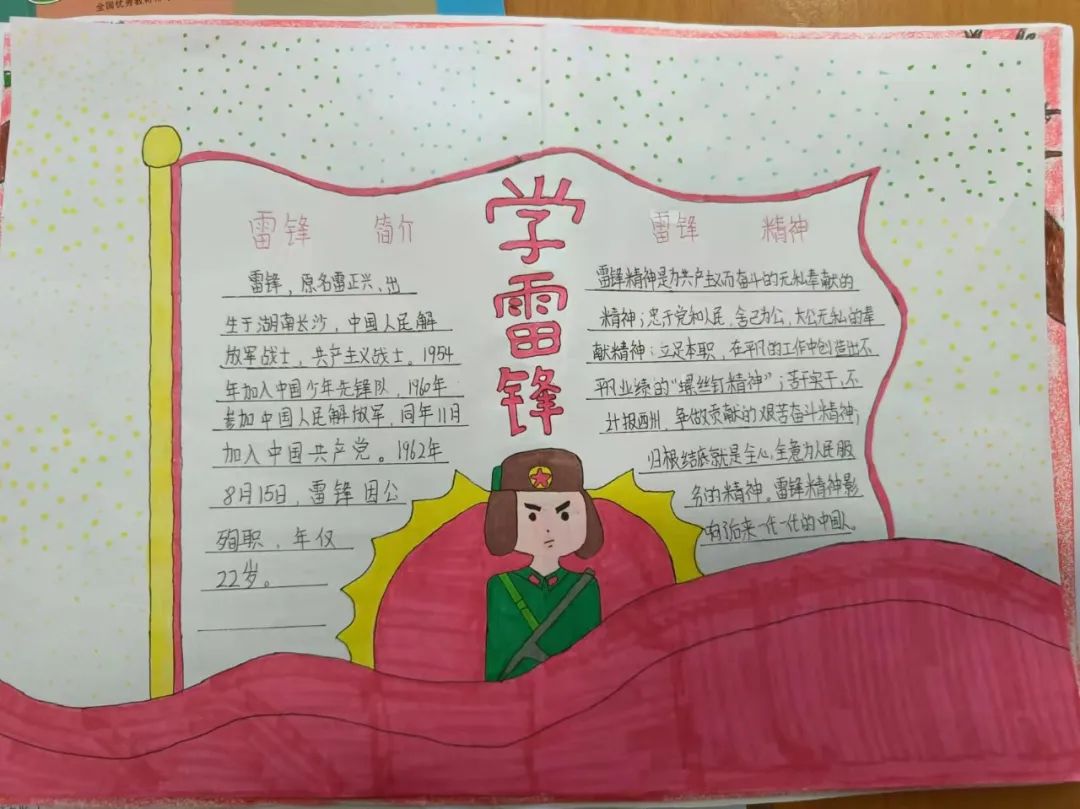 全国优秀教材
学雷锋
雷锋 简介
雷锋，原名雷正兴、出
生于湖南长沙，中国人民解
放军战士，共产主义战士。1954
年加入中国少年先锋队，1960年
参加中国人民解放军，同年11月
加入中国共产党。1962年
8月15日，雷锋因公
殉职，年仅
22岁。
雷锋 精神
雷锋精神是为共产主义而奋斗的无私奉献的
精神；忠于党和人民，舍己为公，大公无私的奉
献精神；立足本职，在平凡的工作中创造出不
平凡业绩的“螺丝钉精神”；苦干实干，不
计报酬，争做贡献的艰苦奋斗精神；
归根结底就是全心全意为人民服
务的精神。雷锋精神影
响了后来一代一代的中国人。